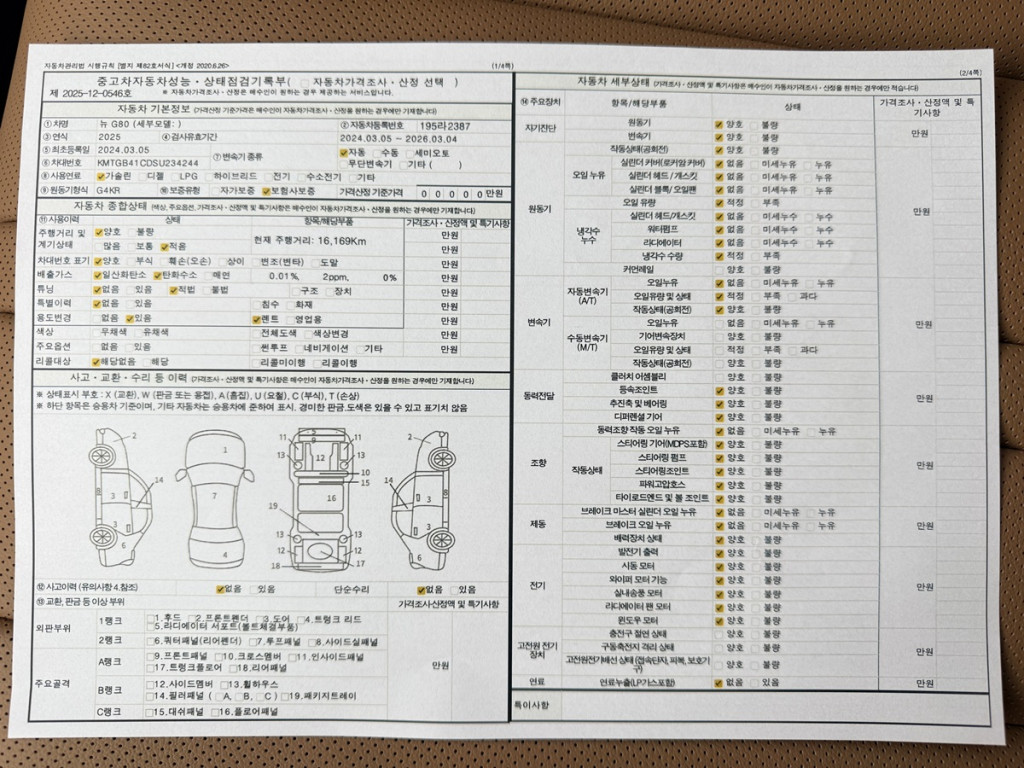 자동차관리법 시행규칙 [별지 제82호서식] <개정 2020.6.26>
(1/4쪽)
중고차자동차성능·상태점검기록부( 자동차가격조사·산정 선택 )
제 2025-12-0546호
※ 자동차가격조사·산정은 매수인이 원하는 경우 제공하는 서비스입니다.
자동차 기본정보 (가격산정 기준가격은 매수인이 자동차가격조사·산정을 원하는 경우에만 기재합니다)
①차명 뉴 G80 (세부모델: ) ②자동차등록번호 195라2387
③연식 2025 ④검사유효기간 2024.03.05 ~ 2026.03.04
⑤최초등록일 2024.03.05
⑥차대번호 KMTGB41CDSU234244
⑦변속기 종류 자동 수동 세미오토
무단변속기 기타 ( )
⑧사용연료 가솔린 디젤 LPG 하이브리드 전기 수소전기 기타
⑨원동기형식 G4KR ⑩보증유형 자가보증 보험사보증 가격산정 기준가격 0 0 0 0 0 만원
자동차 종합상태 (색상, 주요옵션, 가격조사·산정액 및 특기사항은 매수인이 자동차가격조사·산정을 원하는 경우에만 기재합니다)
⑪사용이력 상태 항목/해당부품 가격조사·산정액 및 특기사항
주행거리 및 계기상태 양호 불량 만원
많음 보통 적음 현재 주행거리: 16,169Km 만원
차대번호 표기 양호 부식 훼손(오손) 상이 변조(변타) 도말 만원
배출가스 일산화탄소 탄화수소 매연 0.01%, 2ppm, 0% 만원
튜닝 없음 있음 적법 불법 구조 장치 만원
특별이력 없음 있음 침수 화재 만원
용도변경 없음 있음 렌트 영업용 만원
색상 무채색 유채색 전체도색 색상변경 만원
주요옵션 없음 있음 썬루프 네비게이션 기타 만원
리콜대상 해당없음 해당 리콜미이행 리콜이행
사고·교환·수리 등 이력 (가격조사·산정액 및 특기사항은 매수인이 자동차가격조사·산정을 원하는 경우에만 기재합니다)
※ 상태표시 부호 : X (교환), W (판금 또는 용접), A (흠집), U (요철), C (부식), T (손상)
※ 하단 항목은 승용차 기준이며, 기타 자동차는 승용차에 준하여 표시. 경미한 판금 도색은 있을 수 있고 표기치 않음
2 3 14 3 6
1 7 4
5 9 11 11 12 13 13 10 15 16 19 13 13 12 12 18 17
2 14 3 3 6
⑫사고이력 (유의사항 4.참조) 없음 있음 단순수리 없음 있음
⑬교환, 판금 등 이상 부위 가격조사·산정액 및 특기사항
외판부위 1랭크 1.후드 2.프론트펜더 3.도어 4.트렁크 리드
5.라디에이터 서포트(볼트체결부품)
2랭크 6.쿼터패널(리어펜더) 7.루프패널 8.사이드실패널
주요골격 A랭크 9.프론트패널 10.크로스멤버 11.인사이드패널
17.트렁크플로어 18.리어패널
만원
B랭크 12.사이드멤버 13.휠하우스
14.필러패널 ( A, B, C ) 19.패키지트레이
C랭크 15.대쉬패널 16.플로어패널
(2/4쪽)
자동차 세부상태 (가격조사·산정액 및 특기사항은 매수인이 자동차가격조사·산정을 원하는 경우에만 적습니다)
⑭주요장치 항목/해당부품 상태 가격조사·산정액 및 특기사항
자기진단 원동기 양호 불량 만원
변속기 양호 불량
원동기 작동상태(공회전) 양호 불량 만원
오일 누유 실린더 커버(로커암 커버) 없음 미세누유 누유
실린더 헤드/개스킷 없음 미세누유 누유
실린더 블록/오일팬 없음 미세누유 누유
오일 유량 적정 부족
냉각수 누수 실린더 헤드/개스킷 없음 미세누수 누수
워터펌프 없음 미세누수 누수
라디에이터 없음 미세누수 누수
냉각수 수량 적정 부족
커먼레일 양호 불량
변속기 자동변속기 (A/T) 오일누유 없음 미세누유 누유 만원
오일유량 및 상태 적정 부족 과다
작동상태(공회전) 양호 불량
수동변속기 (M/T) 오일누유 없음 미세누유 누유
기어변속장치 양호 불량
오일유량 및 상태 적정 부족 과다
작동상태(공회전) 양호 불량
동력전달 클러치 어셈블리 양호 불량 만원
등속조인트 양호 불량
추진축 및 베어링 양호 불량
디퍼렌셜 기어 양호 불량
조향 동력조향 작동 오일 누유 없음 미세누유 누유 만원
작동상태 스티어링 기어(MDPS포함) 양호 불량
스티어링 펌프 양호 불량
스티어링조인트 양호 불량
파워고압호스 양호 불량
타이로드엔드 및 볼 조인트 양호 불량
제동 브레이크 마스터 실린더 오일 누유 없음 미세누유 누유 만원
브레이크 오일 누유 없음 미세누유 누유
배력장치 상태 양호 불량
전기 발전기 출력 양호 불량 만원
시동 모터 양호 불량
와이퍼 모터 기능 양호 불량
실내송풍 모터 양호 불량
라디에이터 팬 모터 양호 불량
윈도우 모터 양호 불량
고전원 전기장치 충전구 절연 상태 양호 불량 만원
구동축전지 격리 상태 양호 불량
고전원전기배선 상태 (접속단자, 피복, 보호기구) 양호 불량
연료 연료누출(LP가스포함) 없음 있음 만원
특이사항